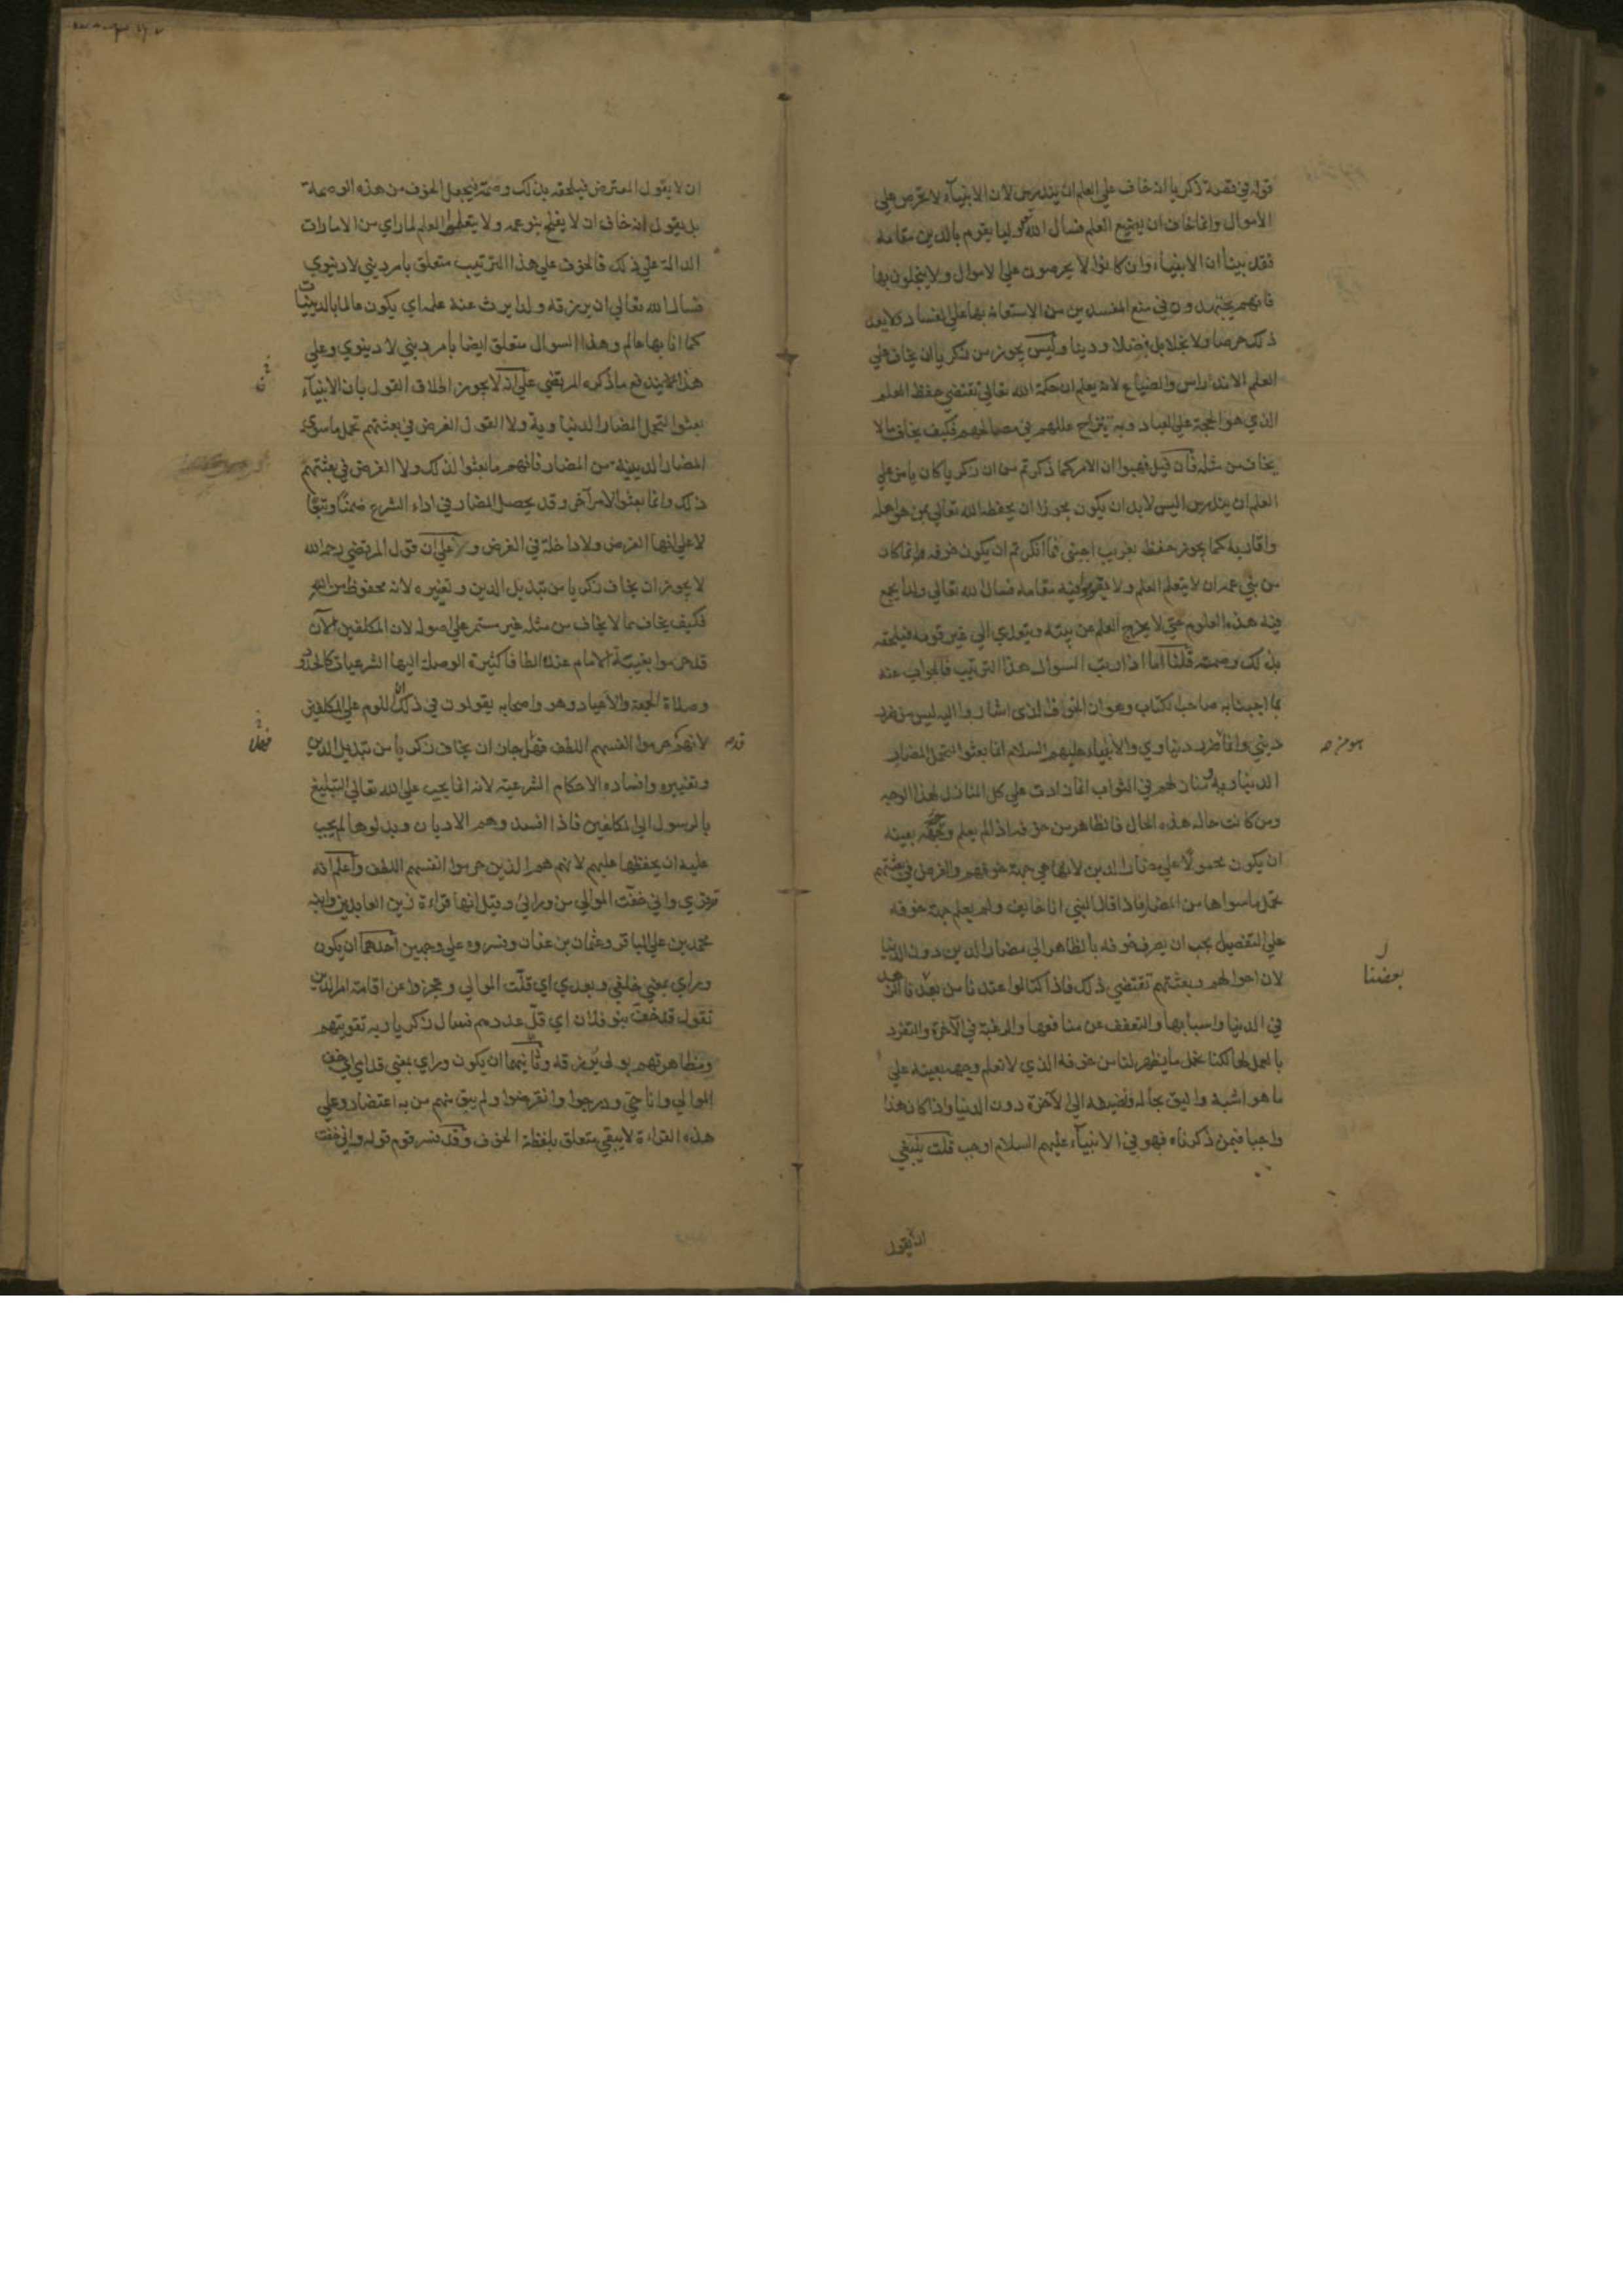 قوله في قصة زكريا انه خاف على العلم ان يندرس لان الانبياء لا تحرص على
الاموال وانما خاف ان يضيع العلم فسال الله وليا يقوم بالدين مقامه
فقد بينا ان الانبياء وان كانوا لا يحرصون على الاموال ولا يبخلون بها
فانهم يجتهدون في منع المفسدين من الاستعانة بها على الفساد ولا يعد
ذلك حرصا ولا بخلا بل فضلا ودينا وليس يجوز من زكريا ان يخاف على
العلم الاندراس والضياع لانه يعلم ان حكمة الله تعالى تقتضي حفظ العلم
الذي هو الحجة على العباد وبه تنزاح عللهم في مصالحهم فكيف يخاف ما لا
يخاف من مثله فان قيل فهبوا ان الامر كما ذكرتم من ان زكريا كان يامن على
العلم ان يندرس اليس لابد ان يكون مجوزا ان يحفظه الله تعالى بمن هو اهله
واقاربه كما يجوز حفظه بغريب اجنبي فما انكرتم ان يكون خوفه انما كان
من بني عمه ان لا يتعلم العلم ولا يقوموا فيه مقامه فسال الله تعالى ولدا يجمع
فيه هذه العلوم حتى لا يخرج العلم عن بيته ويتعدي الى غير قومه فيلحقه
بذلك وصمة قلنا اما اذا رتب السوال هذا الترتيب فالجواب عنه
بما اجبنا به صاحب الكتاب وهو ان الخوف الذي اشاروا اليه ليس من ضرر
ديني وانما هو ضرر دنياوي والانبياء عليهم السلام انما بعثوا لتحمل المضار
الدنياوية ومنازلهم في الثواب انما زادت على كل المنازل لهذا الوجه
ومن كانت حاله هذه الحال فالظاهر من خوفه اذا لم يعلم وجهه بعينه
ان يكون محمولا على مضار الدين لانها هي جهة خوفهم والغرض في بعثتهم
تحمل ما سواها من المضار فاذا قال النبي انا خايف ولم يعلم جهة خوفه
على التفصيل يجب ان يصرف خوفه بالظاهر الى مضار الدين دون الدنيا
لان احوالهم وبعثتهم تقتضي ذلك فاذا كنا لو اعتدنا من بعدنا الزهد
بعضنا
في الدنيا واسبابها والتعفف عن منافعها والرغبة في الآخرة والتفرد
بالعمل لها لكنا نحمل ما يظهر لنا من خوفه الذي لا نعلم وجهه بعينه على
ما هو اشبه واليق بحاله ونضيفه الى الآخرة دون الدنيا واذا كان هذا
واجبا فيمن ذكرناه فهو في الانبياء عليهم السلام اوجب قلت ينبغي
ان لا يقول
ان لا يقول المعترض فيلحقه بذلك وصمة فيجعل الخوف من هذه الوصمة
بل يقول انه خاف ان لا يفلح بنو عمه ولا يتعلموا العلم لما راي من الامارات
الدالة على ذلك فالخوف على هذا الترتيب متعلق بامر ديني لا دنيوي
فسال الله تعالى ان يرزقه ولدا يرث عنه علمه اي يكون عالما بالدينيات
كما انا بها عالم وهذا السوال متعلق ايضا بامر ديني لا دنيوي وعلى
هذا يندفع ما ذكره المرتضي على انه لا يجوز اطلاق القول بان الانبياء
بعثوا لتحمل المضار الدنياوية ولا القول الغرض في بعثتهم تحمل ما سوى
المضار الدينية من المضار فانهم ما بعثوا لذلك ولا الغرض في بعثتهم
ذلك وانما بعثوا لامر آخر وقد يحصل المضار في اداء الشرع ضمنا وتبعا
لا على انها الغرض ولا داخلة في الغرض وعلى ان قول المرتضي رحمه الله
لا يجوز ان يخاف زكريا من تبديل الدين وتغييره لانه محفوظ من الله
فكيف يخاف ما لا يخاف من مثله غير مستمر على اصوله لان المكلفين الآن
قد حرموا بغيبة الامام عنده الطافا كثيرة الوصلة اليها الشرعيات كالحدود
وصلاة الجمعة والاعياد وهو واصحابه يقولون في ذلك ان اللوم على المكلفين
لانهم قد حرموا انفسهم اللطف فهلا جاز ان يخاف زكريا من تبديل الدين
وتغييره وافساده الاحكام الشرعية لانه انما يجب على الله تعالى التبليغ
بالرسول الى المكلفين فاذا افسدوهم الاديان وبدلوها لم يجب
عليه ان يحفظها عليهم لانهم هم الذين حرموا انفسهم اللطف واعلم انه
قد قري واني خفت الموالي من ورائي وقيل انها قراءة زين العابدين وابنه
محمد بن علي الباقر وعثمان بن عفان وفسروه على وجهين احدهما ان يكون
وراي بمعني خلفي وبعدي اي قلت الموالي وعجزوا عن اقامة امر الدين
تقول قد خف بنو فلان اي قل عددهم فسال زكريا ربه تقويتهم
ومظاهرتهم بولى يرزقه وثانيهما ان يكون وراي بمعني قدامي اي خف
الموالي وانا حي ودرجوا وانقرضوا ولم يبق منهم من به اعتضاد وعلى
هذه القراءة لا يبقى متعلق بلفظة الخوف وقد فسر قوم قوله واني خفت